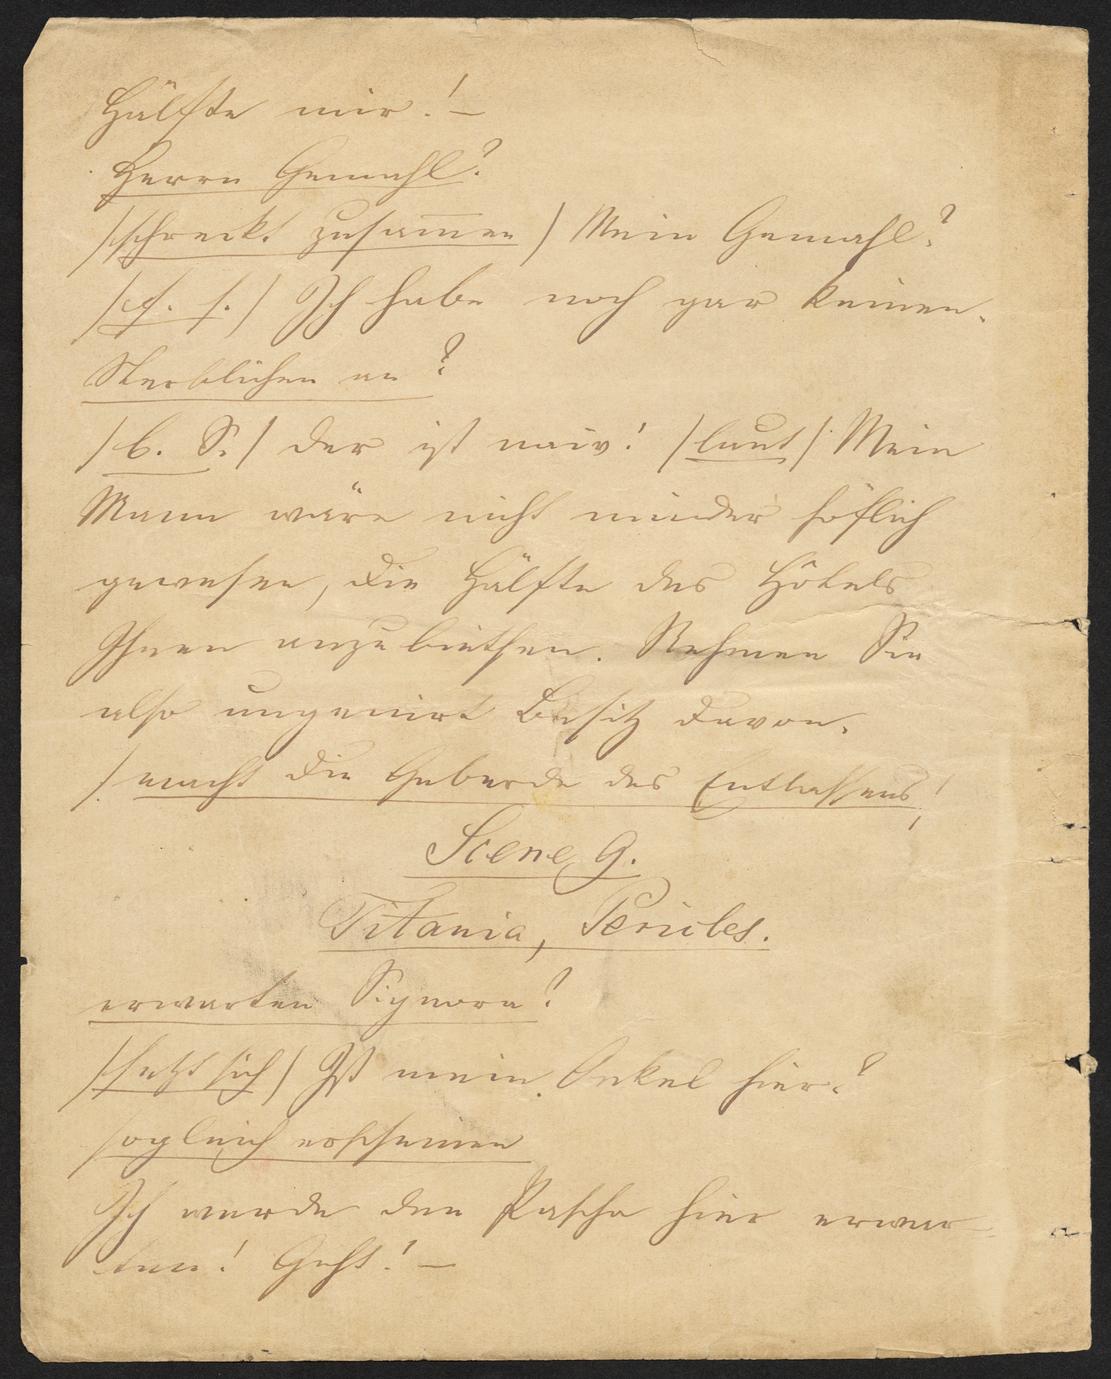 Hälfte mir! –
Herrn Gemahl?
/schreckt zusammen/ Mein Gemahl?
/f. s./ Ich habe noch gar keinen.
Sterblichen an?
/b. S./ der ist naiv! /laut/ Mein
Mann wäre nicht minder höflich
gewesen, die Hälfte des Hôtels
Ihnen anzubiethen. Nehmen Sie
also ungenirt Besitz davon.
/macht die Geberde des Entlassens/
Scene 9.
Titania, Pericles.
erwarten Signora?
/setzt sich/ Ist mein Onkel hier?
sogleich erscheinen
Ich werde den Pascha hier erwar-
ten! Geht! –